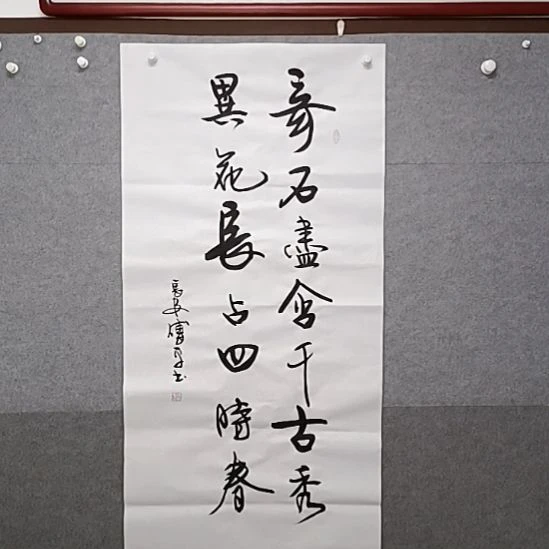 奇石盡含千古秀
異花長占四時春